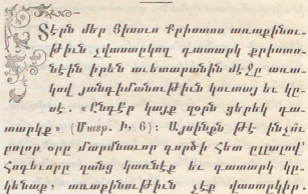 Տէրն մեր Յիսուս Քրիստոս առաքինու-
թիւն չվաստկող դատարկ քրիստո-
նէին իրեն աւետարանին մէջը առա-
կով յանդիմանութիւն կուտայ եւ կը-
սէ. «Ընդէ՞ր կայք զօրն ցերեկ դա-
տարկք» (Մատթ. Ի, 6)։ Այսինքն թէ ինչո՞ւ
բոլոր օրը մարմնաւոր գործի հետ ըլլալով՝
Հոգեւորը դանց կառնէք եւ դատարկ կը-
կենաք, առաքինութիւն չէք կատարեր։